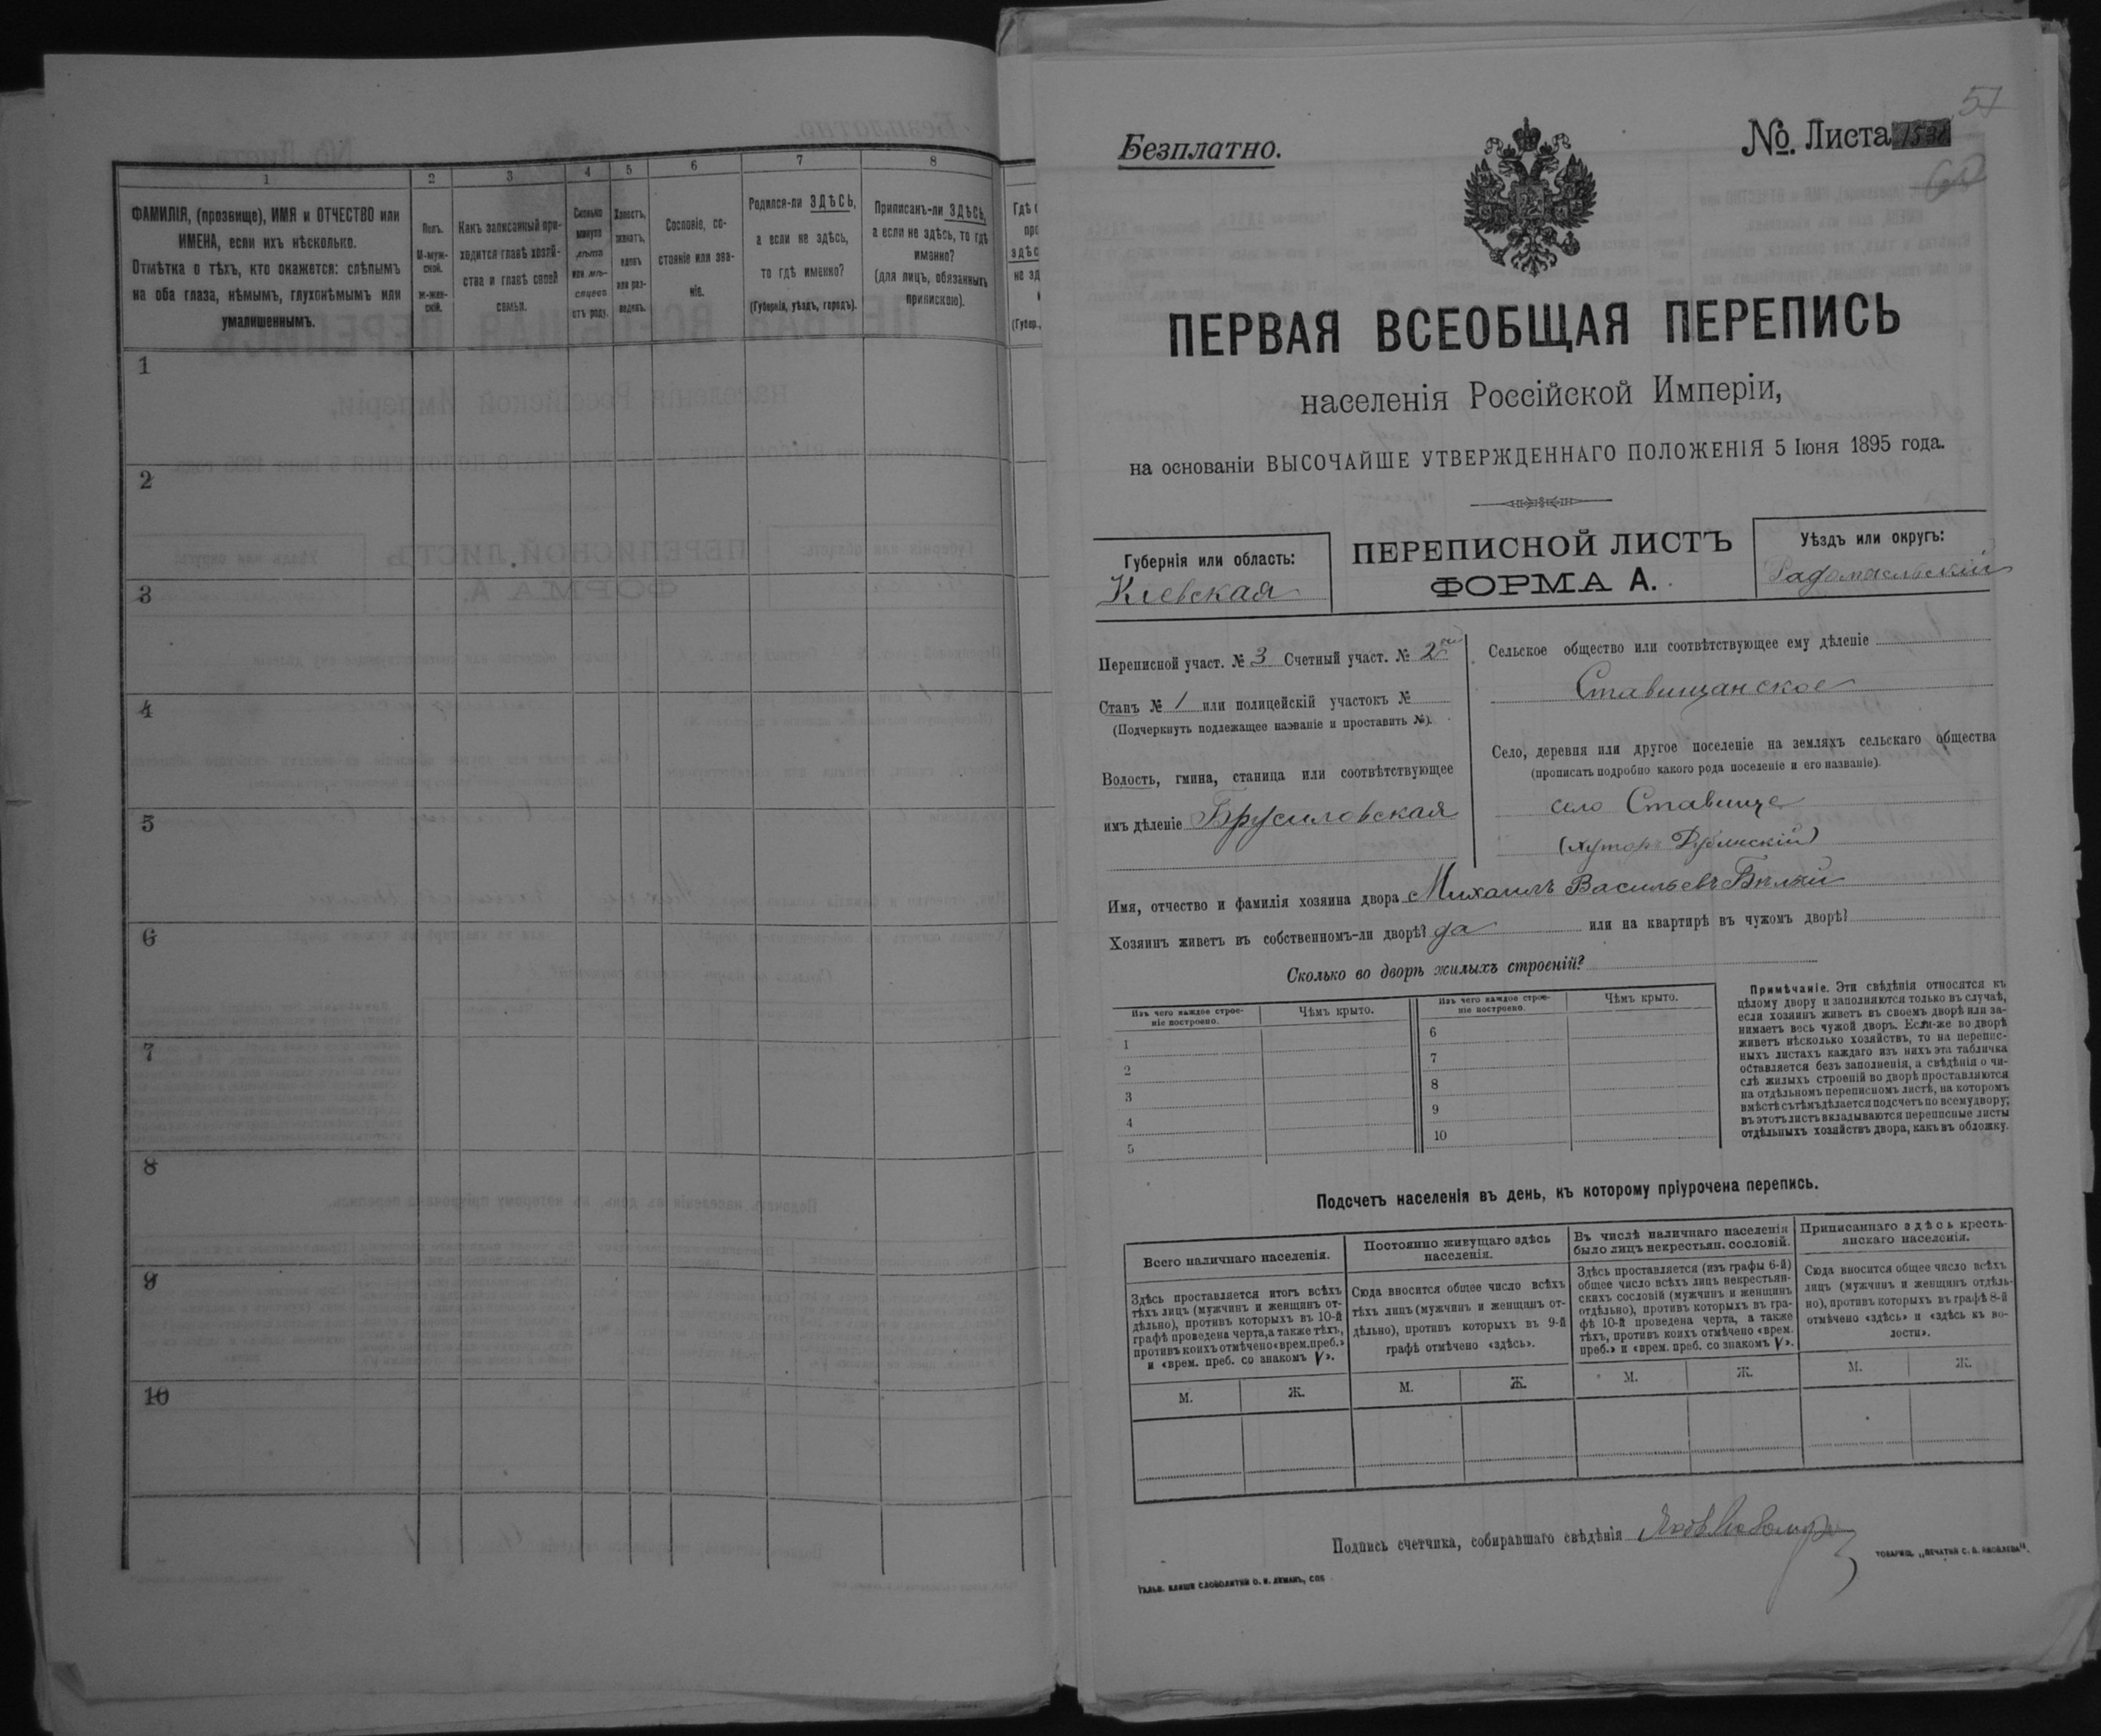 1
2
3
4
5
6
7
8
ФАМИЛІЯ, (прозвище), ИМЯ и ОТЧЕСТВО или
ИМЕНА, если ихъ нѣсколько.
Отмѣтка о тѣхъ, кто окажется: слѣпымъ
на оба глаза, нѣмымъ, глухонѣмымъ или
умалишеннымъ.
Полъ.
М-муж-
ской.
ж-жен-
скій.
Какъ записанный при-
ходится главѣ хозяй-
ства и главѣ своей
семьи.
Сколько
минуло
лѣтъ
или мѣ-
сяцевъ
отъ роду.
Холостъ,
женатъ,
вдовъ
или раз-
веденъ.
Сословіе, со-
стояніе или зва-
ніе.
Родился-ли ЗДѢСЬ,
а если не здѣсь,
то гдѣ именно?
(Губернія, уѣздъ, городъ).
Приписанъ-ли ЗДѢСЬ,
а если не здѣсь, то гдѣ
именно?
(для лицъ, обязанныхъ
припискою).
1
2
3
4
5
6
7
8
9
10
57
Безплатно.
№. Листа
ПЕРВАЯ ВСЕОБЩАЯ ПЕРЕПИСЬ
населенія Россійской Имперіи,
на основаніи ВЫСОЧАЙШЕ УТВЕРЖДЕННАГО ПОЛОЖЕНІЯ 5 Іюня 1895 года.
Губернія или область:
Кіевская
ПЕРЕПИСНОЙ ЛИСТЪ
ФОРМА А.
Уѣздъ или округъ:
Радомысльскій
Переписной участ. № 3 Счетный участ. № 2ой
Станъ № 1 или полицейскій участокъ №
(Подчеркнуть подлежащее названіе и проставить №).
Волость, гмина, станица или соотвѣтствующее
имъ дѣленіе Брусиловская
Сельское общество или соотвѣтствующее ему дѣленіе
Ставищанское
Село, деревня или другое поселеніе на земляхъ сельскаго общества
(прописать подробно какого рода поселеніе и его названіе).
село Ставище
(хуторъ Дубинскій)
Имя, отчество и фамилія хозяина двора Михаилъ Васильевъ Бѣлый
Хозяинъ живетъ въ собственномъ-ли дворѣ? да или на квартирѣ въ чужомъ дворѣ?
Сколько во дворѣ жилыхъ строеній?
Изъ чего каждое строе-
ніе построено.
Чѣмъ крыто.
Изъ чего каждое строе-
ніе построено.
Чѣмъ крыто.
1
2
3
4
5
6
7
8
9
10
Примѣчаніе. Эти свѣдѣнія относятся къ
цѣлому двору и заполняются только въ случаѣ,
если хозяинъ живетъ въ своемъ дворѣ или за-
нимаетъ весь чужой дворъ. Если-же во дворѣ
живетъ нѣсколько хозяйствъ, то на перепис-
ныхъ листахъ каждаго изъ нихъ эта табличка
оставляется безъ заполненія, а свѣдѣнія о чи-
слѣ жилыхъ строеній во дворѣ проставляются
на отдѣльномъ переписномъ листѣ, на которомъ
вмѣстѣ съ тѣмъ дѣлается подсчетъ по всему двору;
въ этотъ листъ вкладываются переписные листы
отдѣльныхъ хозяйствъ двора, какъ въ обложку.
Подсчетъ населенія въ день, къ которому пріурочена перепись.
Всего наличнаго населенія.
Постоянно живущаго здѣсь
населенія.
Въ числѣ наличнаго населенія
было лицъ некрестьян. сословій.
Приписаннаго здѣсь кресть-
янскаго населенія.
Здѣсь проставляется итогъ всѣхъ
тѣхъ лицъ (мужчинъ и женщинъ от-
дѣльно), противъ которыхъ въ 10-й
графѣ проведена черта, а также тѣхъ,
противъ коихъ отмѣчено «врем. преб.»
и «врем. преб. со знакомъ V».
Сюда вносится общее число всѣхъ
тѣхъ лицъ (мужчинъ и женщинъ от-
дѣльно), противъ которыхъ въ 9-й
графѣ отмѣчено «здѣсь».
Здѣсь проставляется (изъ графы 6-й)
общее число всѣхъ лицъ некрестьян-
скихъ сословій (мужчинъ и женщинъ
отдѣльно), противъ которыхъ въ гра-
фѣ 10-й проведена черта, а также
тѣхъ, противъ коихъ отмѣчено «врем.
преб.» и «врем. преб. со знакомъ V».
Сюда вносится общее число всѣхъ
лицъ (мужчинъ и женщинъ отдѣль-
но), противъ которыхъ въ графѣ 8-й
отмѣчено «здѣсь» и «здѣсь къ во-
лости».
М.
Ж.
М.
Ж.
М.
Ж.
М.
Ж.
Подпись счетчика, собиравшаго свѣдѣнія
ГАЛЬВ. КЛИШЕ СЛОВОЛИТНИ О. И. ЛЕМАНЪ, СПБ
ТОВАРИЩ. „ПЕЧАТНЯ С. П. ЯКОВЛЕВА“.